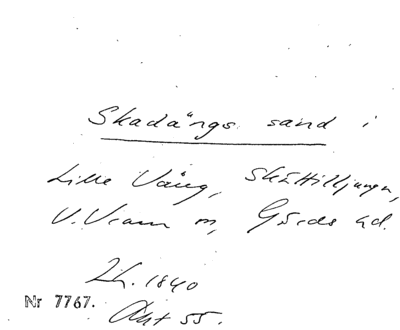 Skadängs sand i
Lille Väng, Skättilljungen,
V. Vram m, Gärds hd.
Lh. 1840
Nr 7767.
Akt 55.